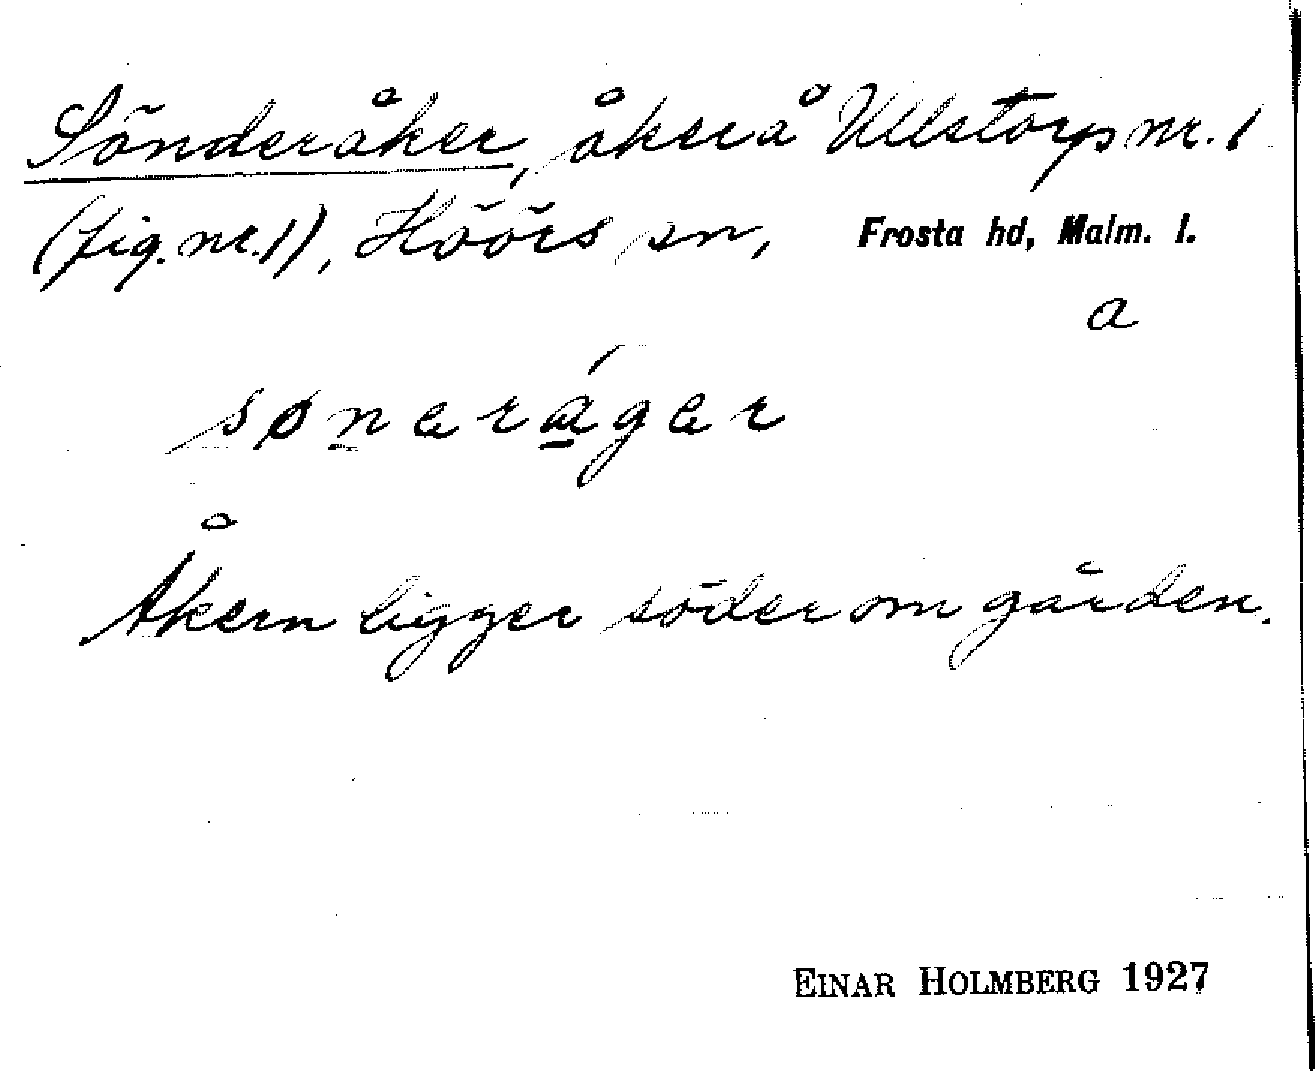 Sönderåker, åker å Ullstorp nr. 1
(fig. nr. 1), Höörs sn, Frosta hd, Malm. l.
a
sønərágər
Åkern ligger söder om gården.
EINAR HOLMBERG 1927